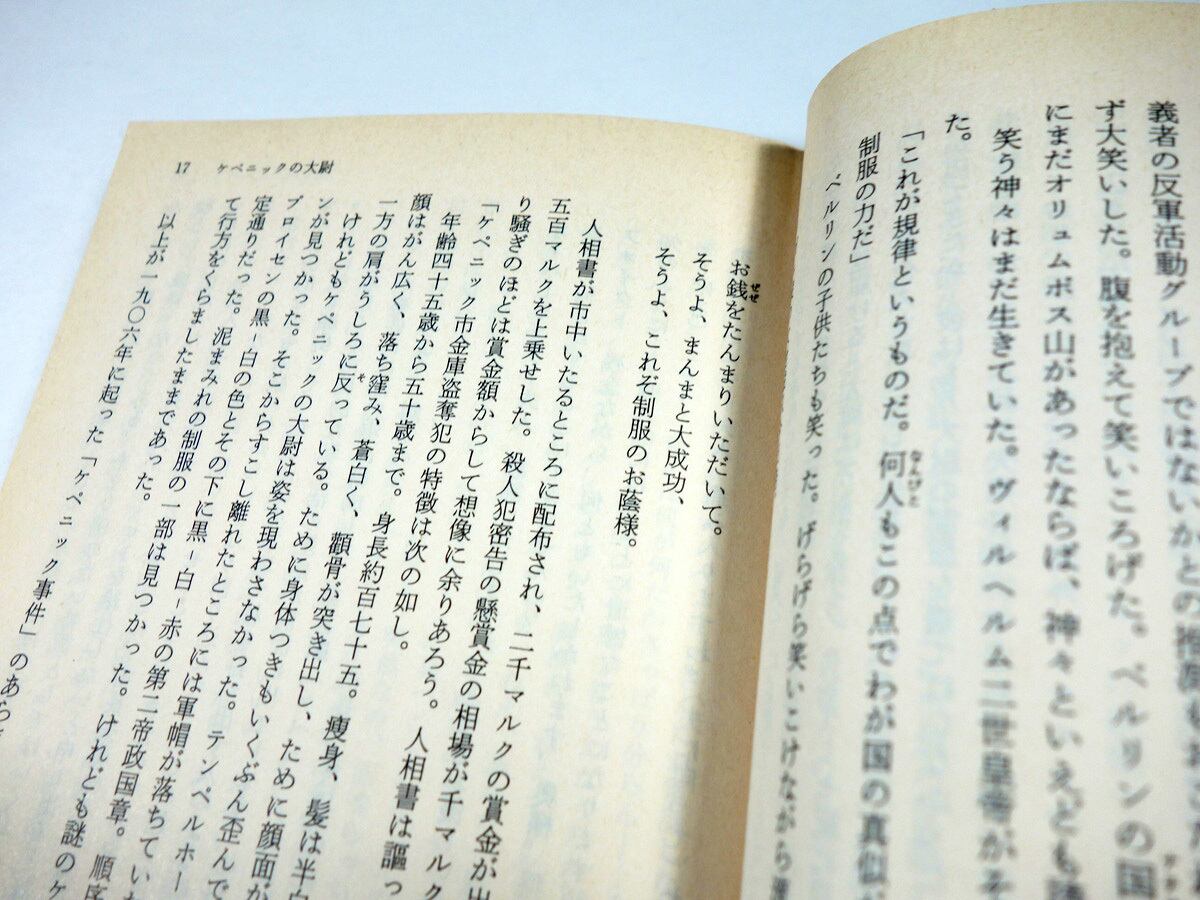 義者の反軍活動グループではないかとの推
ず大笑いした。腹を抱えて笑いころげた。ベルリンの国
にまだオリュムポス山があったならば、神々といえども
笑う神々はまだ生きていた。ヴィルヘルム二世皇帝がそ
た。
「これが規律というものだ。何人もこの点でわが国の真似
なんびと
制服の力だ」
ベルリンの子供たちも笑った。げらげら笑いこけながら
17 ケペニックの大尉
お銭をたんまりいただいて。
ぜぜ
そうよ、まんまと大成功、
そうよ、これぞ制服のお蔭様。
人相書が市中いたるところに配布され、二千マルクの賞金が出
五百マルクを上乗せした。殺人犯密告の懸賞金の相場が千マルク
り騒ぎのほどは賞金額からして想像に余りあろう。人相書は謳っ
「ケペニック市金庫盗奪犯の特徴は次の如し。
年齢四十五歳から五十歳まで。身長約百七十五。痩身、髪は半白
顔はがん広く、落ち窪み、蒼白く、顴骨が突き出し、ために顔面が
一方の肩がうしろに反っている。ために身体つきもいくぶん歪んで
そ
けれどもケペニックの大尉は姿を現わさなかった。テンペルホー
ンが見つかった。そこからすこし離れたところには軍帽が落ちていた
プロイセンの黒-白の色とその下に黒-白-赤の第二帝政国章。順序
定通りだった。泥まみれの制服の一部は見つかった。けれども謎のケ
て行方をくらましたままであった。
以上が一九〇六年に起った「ケペニック事件」のあら